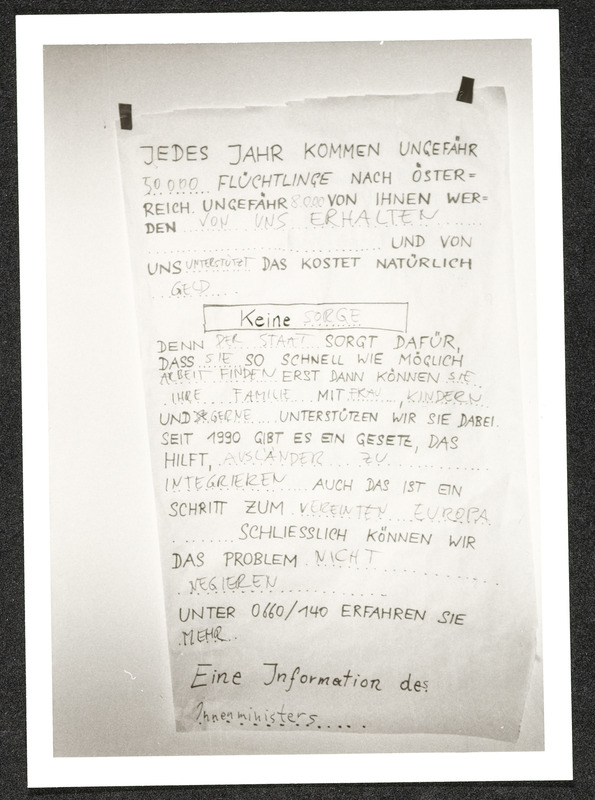 JEDES JAHR KOMMEN UNGEFÄHR
50.000 FLÜCHTLINGE NACH ÖSTER=
REICH. UNGEFÄHR 8.000 VON IHNEN WER=
DEN VON UNS ERHALTEN
UND VON
UNS UNTERSTÜTZT DAS KOSTET NATÜRLICH
GELD
Keine SORGE
DENN DER STAAT SORGT DAFÜR,
DASS SIE SO SCHNELL WIE MÖGLICH
ARBEIT FINDEN ERST DANN KÖNNEN SIE
IHRE FAMILIE MIT FRAU, KINDERN
UND GERNE UNTERSTÜTZEN WIR SIE DABEI.
SEIT 1990 GIBT ES EIN GESETZ, DAS
HILFT, AUSLÄNDER ZU
INTEGRIEREN AUCH DAS IST EIN
SCHRITT ZUM VEREINTEN EUROPA
SCHLIESSLICH KÖNNEN WIR
DAS PROBLEM NICHT
NEGIEREN
UNTER 0660/140 ERFAHREN SIE
MEHR.
Eine Information des
Innenministers